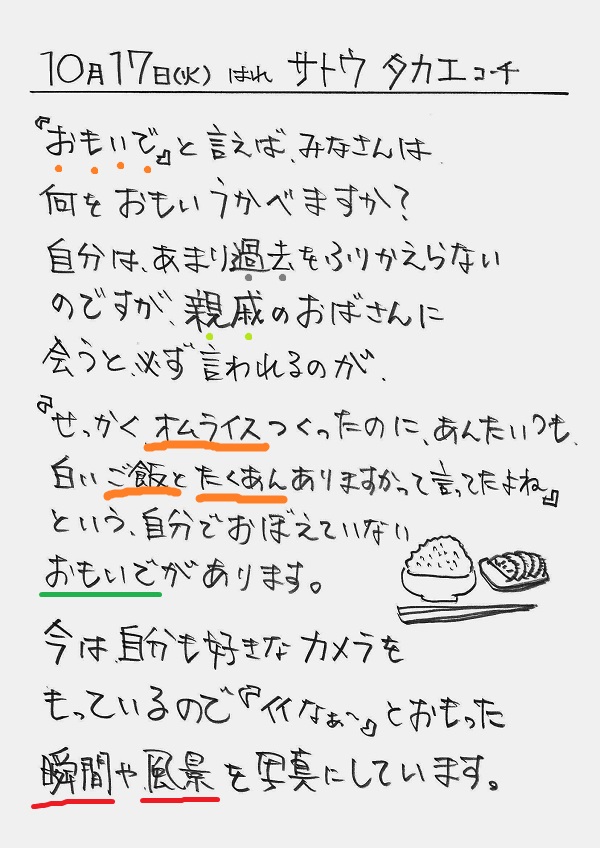 10月17日(火) はれ サトウ タカエ コーチ
『おもいで』と言えば、みなさんは
何をおもいうかべますか?
自分は、あまり過去をふりかえらない
のですが、親戚のおばさんに
会うと、必ず言われるのが、
『せっかく、オムライスつくったのに、あんたいつも、
白いご飯とたくあんありますかって言ってたよね』
という、自分でおぼえていない
おもいでがあります。
今は、自分も好きなカメラを
もっているので『イイなぁ〜』とおもった
瞬間や風景を写真にしています。